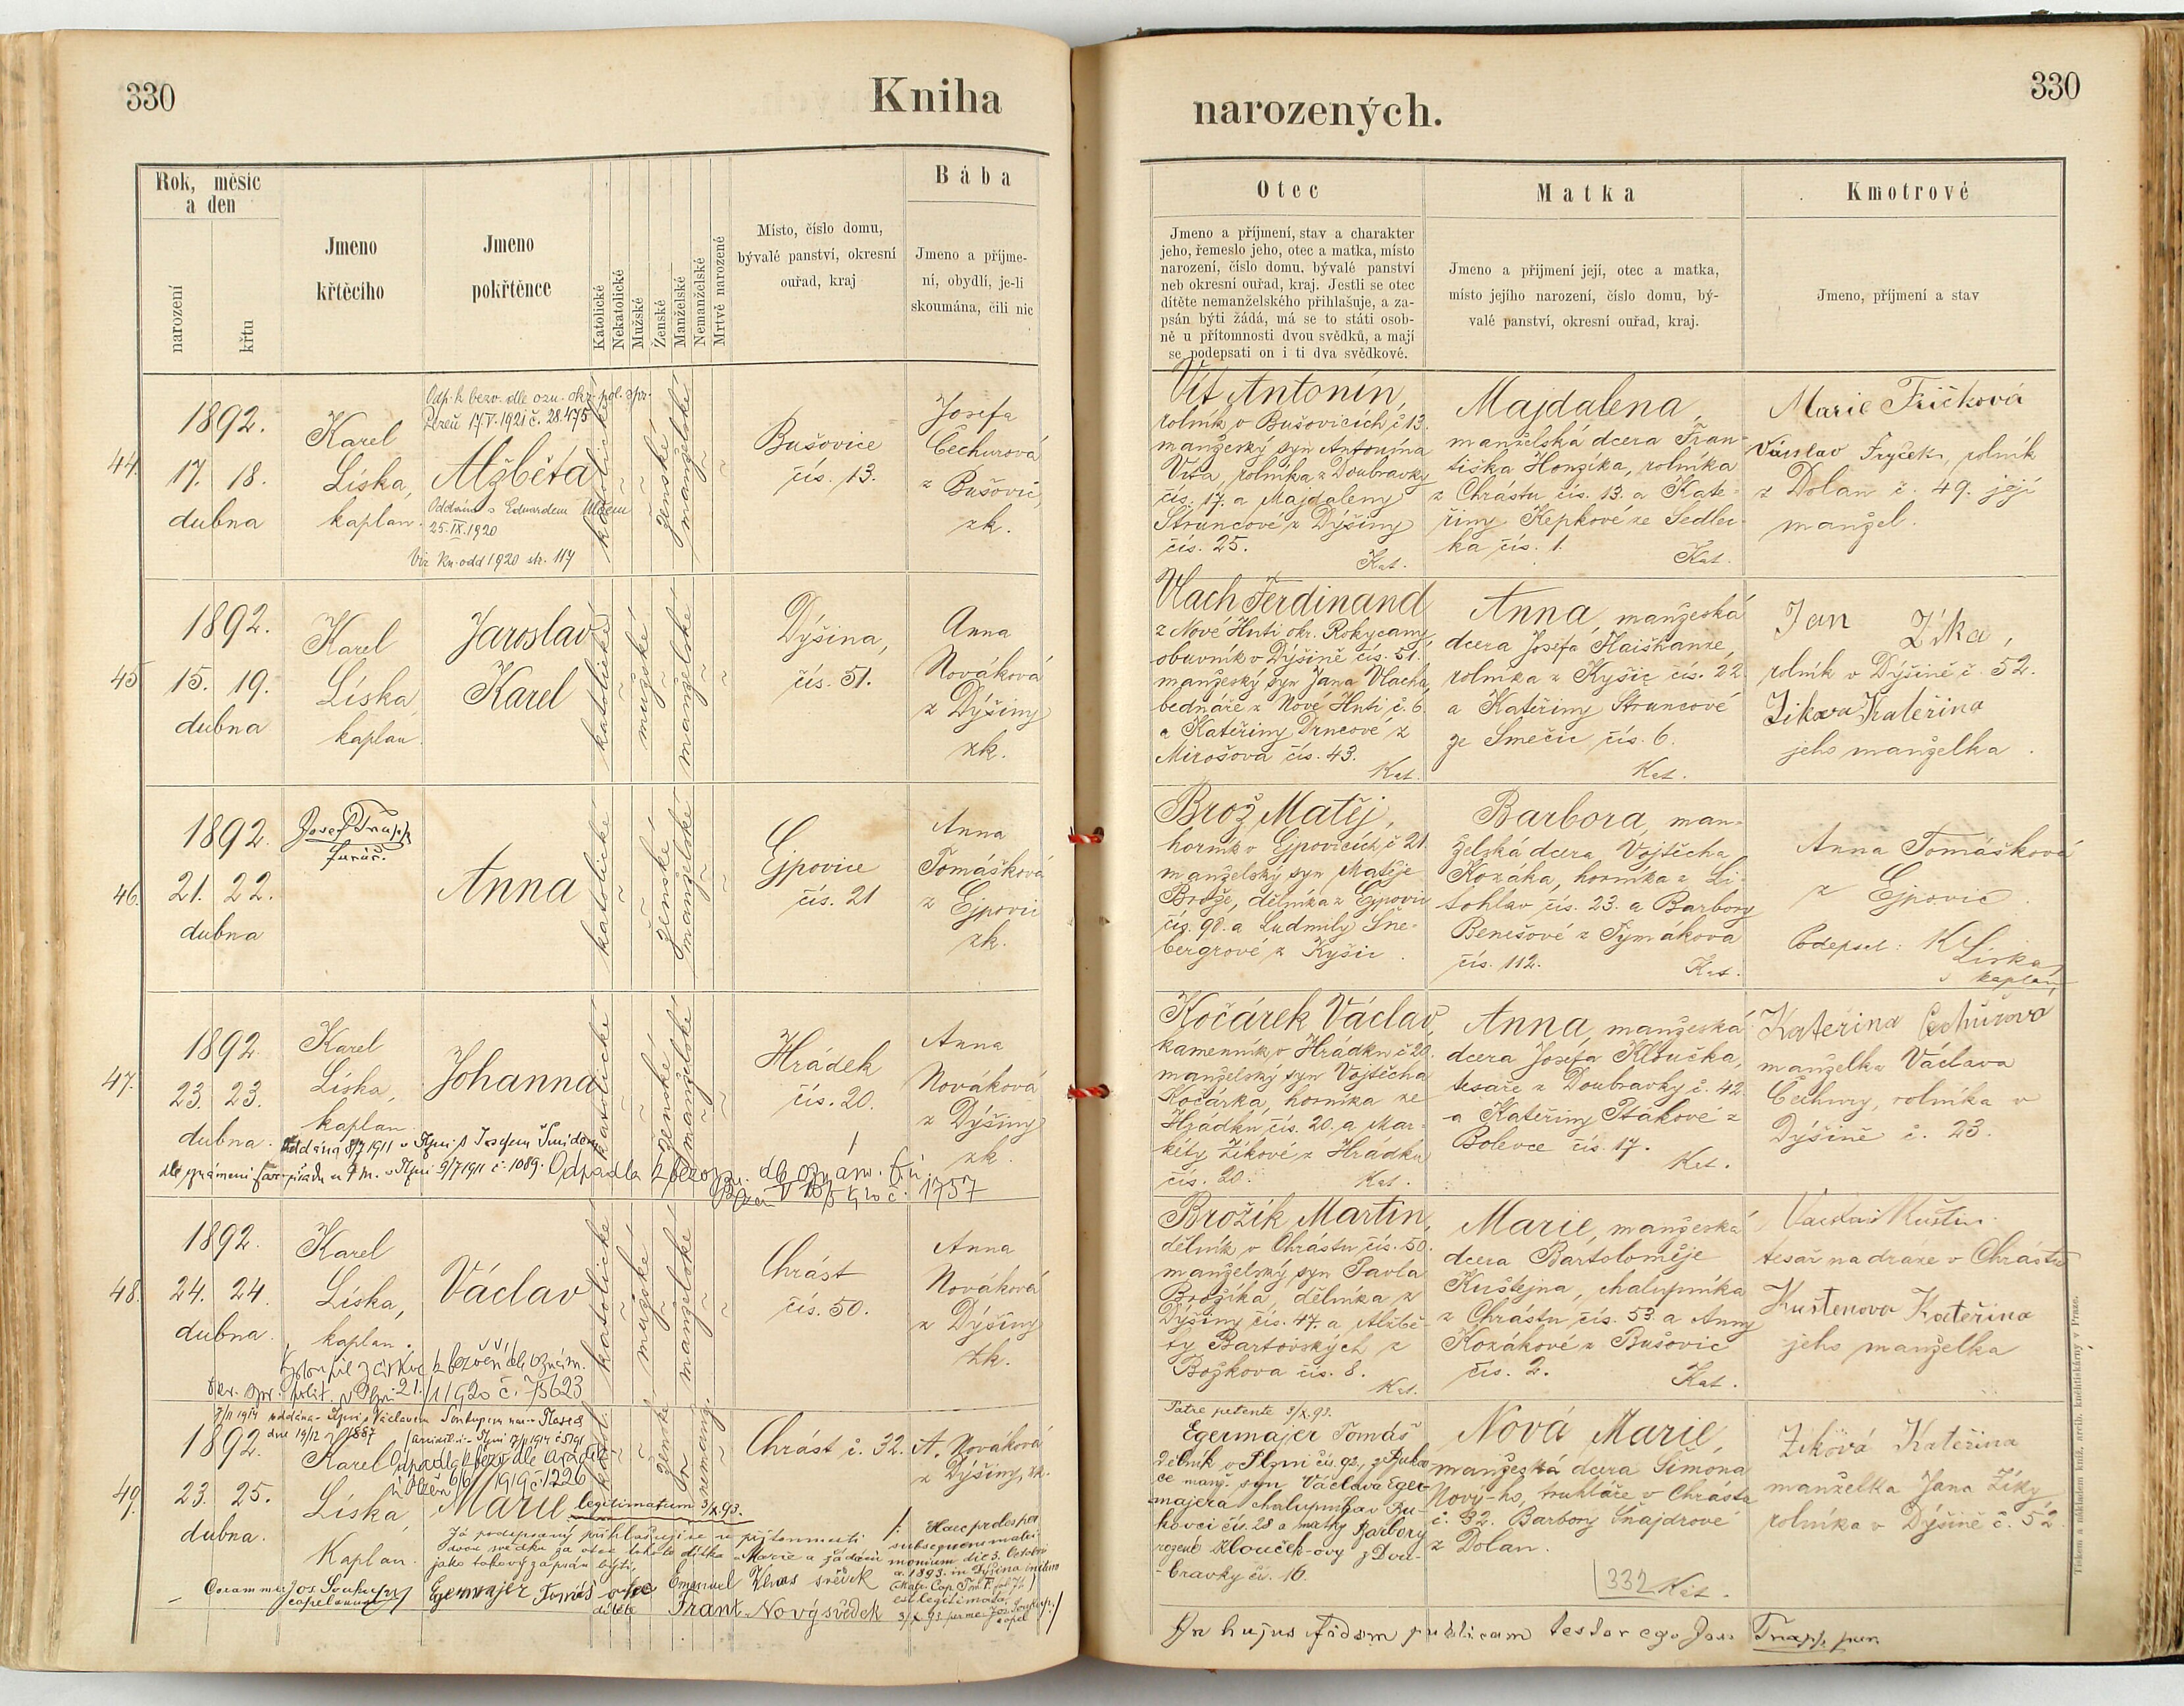 330
Kniha
Rok, měsíc
a den
narození
křtu
Jmeno
křtěcího
Jmeno
pokřtěnce
Katolické
Nekatolické
Mužské
Ženské
Manželské
Nemanželské
Mrtvě narozené
Místo, číslo domu,
bývalé panství, okresní
ouřad, kraj
Bába
Jmeno a příjme-
ní, obydlí, je-li
skoumána, čili nic
44
1892.
17. 18.
dubna
Karel
Líska,
kaplan.
Odp. k bezv. dle ozn. okr. pol. spr.
Plzeň 17/V. 1921 č. 28.475
Alžběta
Oddána s Eduardem
25.IX.1920
Viz kn. odd 1920 str. 117
katolické
ženské
manželské
Bušovice
čís. 13.
Josefa
Čechurová
z Bušovic,
zk.
45
1892.
15. 19.
dubna
Karel
Líska,
kaplan.
Jaroslav
Karel
katolické
mužské
manželské
Dýšina,
čís. 51.
Anna
Nováková
z Dýšiny
zk.
46.
1892.
21. 22.
dubna
Josef Trapp
farář.
Anna
katolické
ženské
manželské
Ejpovice
čís. 21
Anna
Tomášková
z Ejpovic
zk.
47.
1892
23. 23.
dubna.
Karel
Líska,
kaplan.
Johanna
katolické
ženské
manželské
Hrádek
čís. 20.
Anna
Nováková
z Dýšiny
zk.
Oddána 8/7 1911 v Plzni s Josefem Šmídem
9/7 1911 č. 1089. Odpadla k bezvyzn.
1757
48.
1892.
24. 24.
dubna.
Karel
Líska,
kaplan.
Václav
katolické
mužské
manželské
Chrást
čís. 50.
Anna
Nováková
z Dýšiny
zk.
Vystoupil z církve k bezvěří dle oznám.
okr. spr. polit. v Plzni 21./1 1920 č. 75623
49.
1892.
23. 25.
dubna.
Karel
Líska,
Kaplan.
Marie legitimatum 3/X.93.
ženské
nemanž.
Chrást č. 32.
A. Nováková
z Dýšiny, zk.
Já podepsaný přihlašuji se v přítomnosti
dvou svědků za otce tohoto dítka Marie a žádám
jako takový zapsán býti.
Coram me: Jos. Soukup
capellanus
Egermajer Tomáš otec
dítěte
Emanuel svědek
Frant. Nový svědek
Haec proles per
subsequens matri-
monium die 3. Octobri
a. 1893. in Dýšina initum
est legitimata.
330
narozených.
Otec
Jmeno a příjmení, stav a charakter
jeho, řemeslo jeho, otec a matka, místo
narození, číslo domu, bývalé panství
neb okresní ouřad, kraj. Jestli se otec
dítěte nemanželského přihlašuje, a za-
psán býti žádá, má se to státi osob-
ně u přítomnosti dvou svědků, a mají
se podepsati on i ti dva svědkové.
Matka
Jmeno a příjmení její, otec a matka,
místo jejího narození, číslo domu, bý-
valé panství, okresní ouřad, kraj.
Kmotrové
Jmeno, příjmení a stav
Vít Antonín,
rolník v Bušovicích č 13.
manželský syn Antonína
Víta, rolníka z Doubravky
čís. 17. a Majdaleny
Štruncové z Dýšiny
čís. 25.
Kat.
Majdalena,
manželská dcera Fran-
tiška Honzíka, rolníka
z Chrástu čís. 13. a Kate-
řiny Kepkové ze Sedlec-
ka čís. 1.
Kat.
Marie Fričková
Václav Fryček, rolník
z Dolan č. 49. její
manžel.
Vlach Ferdinand
z Nové Huti okr. Rokycany,
obuvník v Dýšině čís. 51.
manžeský syn Jana Vlacha,
bednáře z Nové Huti, č. 6.
a Kateřiny Drncové z
Mirošova čís. 43.
Kat.
Anna, manžeská
dcera Josefa Haišmanze,
rolníka z Kyšic čís. 22
a Kateřiny Štruncové
ze Smečic čís. 6.
Kat.
Jan Zíka,
rolník v Dýšině č. 52.
Zikova Kateřina
jeho manželka.
Brož Matěj,
horník v Ejpovicích, č 21
manželský syn Matěje
Brože, dělníka z Ejpovic
čís. 98. a Ludmily Šne-
bergrové z Kyšic.
Barbora, man-
želská dcera Vojtěcha
Kozáka, horníka z Li-
tohlav čís. 23. a Barbory
Benešové z Tymákova
čís. 112.
Kat.
Anna Tomášková
z Ejpovic.
Podepsal: K. Líska,
kaplan
Kočárek Václav,
kamenník v Hrádku č 20.
manželský syn Vojtěcha
Kočárka, horníka ze
Hrádku čís. 20. a Mar-
kéty Zíkové z Hrádku
čís. 20.
Kat.
Anna, manžeská
dcera Josefa Kloučka,
tesaře z Doubravky č. 42
a Kateřiny Ptákové z
Bolevce čís. 17.
Kat.
Kateřina Čechurova
manželka Václava
Čechury, rolníka v
Dýšině č. 23.
Brožík Martin,
dělník v Chrástu čís. 50.
manželský syn Pavla
Brožíka, dělníka z
Dýšiny čís. 47. a Alžbě-
ty Bartovských z
Božkova čís. 8.
Kat.
Marie, manžeská
dcera Bartoloměje
Kuštejna, chalupníka
z Chrástu čís. 53. a Anny
Kozákové z Bušovic
čís. 2.
Kat.
Vaclav Kuštin
tesař na draze v Chrástu
Kuštenova Kateřina
jeho manželka
Patre petente 3/X.93.
Egermajer Tomáš
dělník v Plzni čís. 92,
manž. syn Václava Eger-
majera chalupníka v Bu-
kovci čís. 28 a matky Barbory
rozené Klouček-ovy z Dou-
bravky čís. 16.
Nová Marie,
manžeská dcera Šimona
Nový-ho, truhláře v Chrástu
č. 32. Barbory Šnajdrové
z Dolan.
332 Kat.
Ziková Kateřina
manželka Jana Zíky
rolníka v Dýšině č. 52
In hujus fidem publicam testor ego Jos. Trapp, par.
Tiskem a nákladem knížt. arcib. knihtiskárny v Praze.